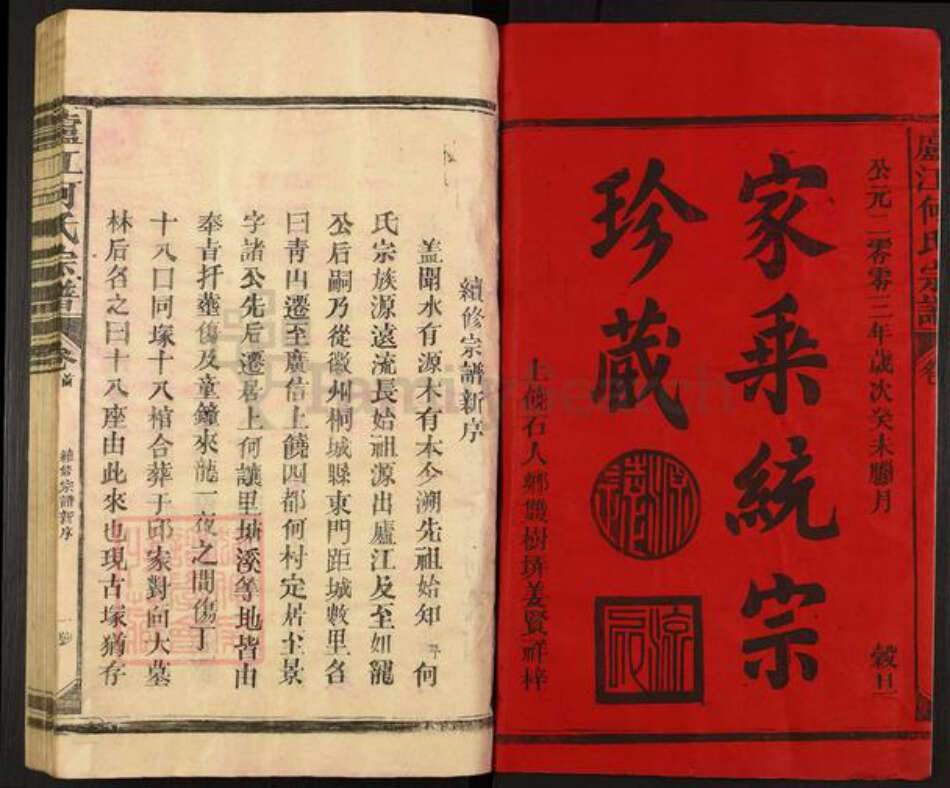 廬江何氏宗譜
卷
公元二零零三年歲次癸未臘月
穀旦
家乘統宗
珍藏
源遠
流長
上饒石人鄉雙樹塝姜賢祥梓
續修宗譜新序
蓋聞水有源木有本今溯先祖始知 何
氏宗族源遠流長始祖源出廬江及至如龍
公后嗣乃從徽州桐城縣東門距城數里名
曰靑山遷至廣信上饒四都何村定居至景
字諸公先后遷居上何讓里塘溪等地皆由
奉旨扦塟傷及童鐘來龍一夜之間傷丁
十八口同塚十八棺合葬于邱家對向大墓
林后名之曰十八座由此來也現古塚猶存
廬江何氏宗譜
卷首
續修宗譜新序
一
FamilySearch